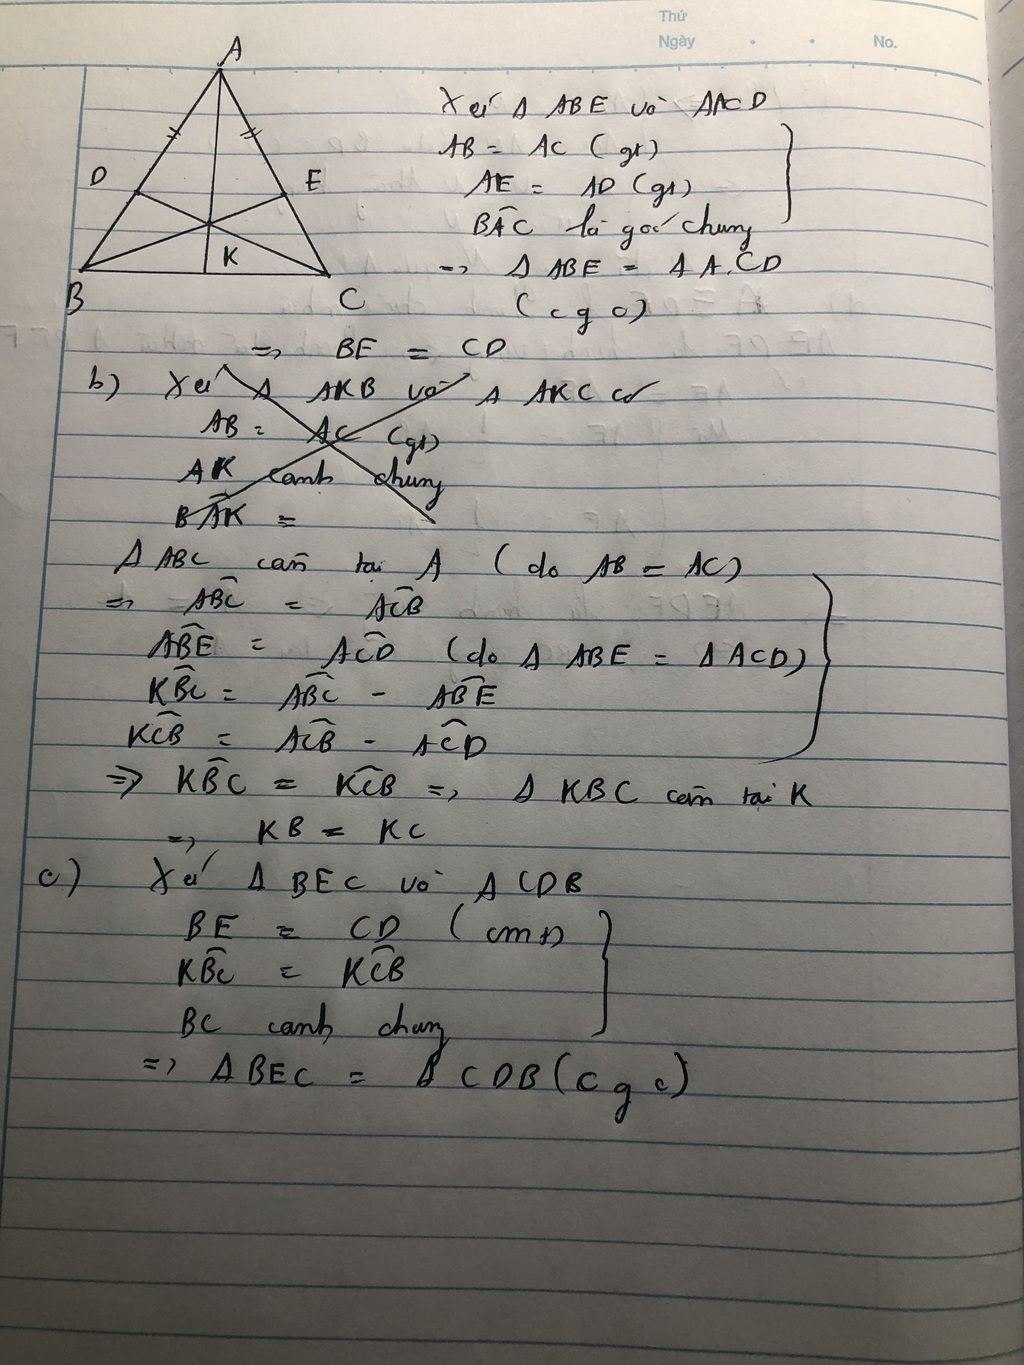 Thứ
Ngày . . No.
A
D
E
K
B
C
Xét Δ ABE và ΔACD
AB = AC (gt)
AE = AD (gt)
BAC là góc chung
=> Δ ABE = Δ ACD
(c g c)
=> BE = CD
b) Xét Δ AKB và Δ AKC có
AB = AC (gt)
AK cạnh chung
BAK =
Δ ABC cân tại A (do AB = AC)
=> ABC = ACB
ABE = ACD (do Δ ABE = ΔACD)
KBC = ABC - ABE
KCB = ACB - ACD
=> KBC = KCB => Δ KBC cân tại K
=> KB = KC
c) Xét Δ BEC và Δ CDB
BE = CD (cmt)
KBC = KCB
BC cạnh chung
=> Δ BEC = Δ CDB (c g c)